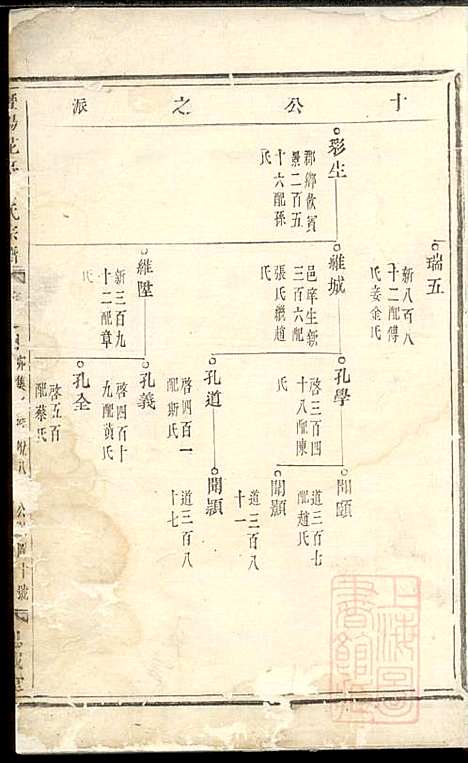 十公之派
瑞五
新八百八
十二配傅
氏妾金氏
彩生
郡鄉飲賓
景二百五
十六配孫
氏
維城
邑庠生新
三百六配
張氏繼趙
氏
孔學
啓三百四
十八配陳
氏
聞頤
道三百七
配趙氏
聞顯
道三百八
十一
孔道
啓四百一
配斯氏
聞顥
道三百八
十七
維墬
新三百九
十二配章
氏
孔義
啓四百十
九配黃氏
孔全
啓五百
配蔡氏
氏宗譜
上海圖書館藏